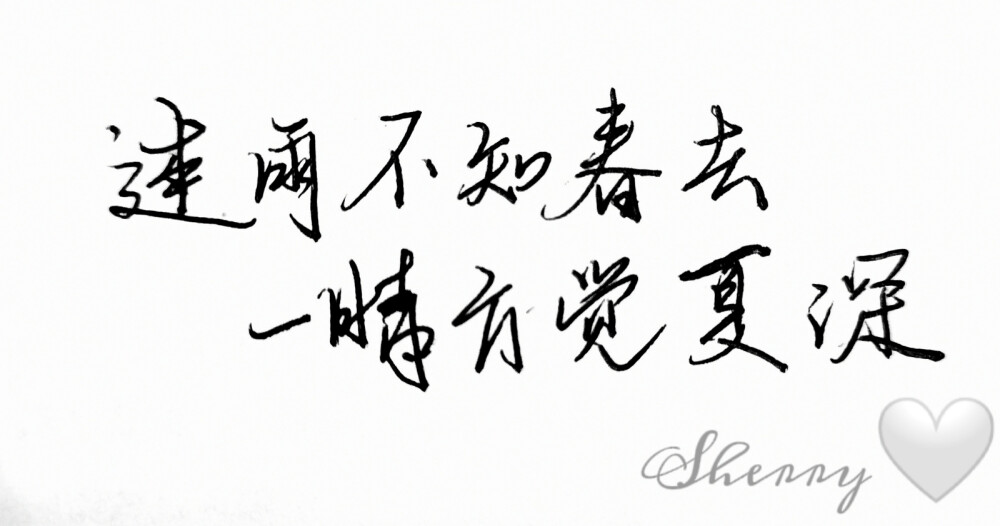 连雨不知春去
一晴方觉夏深
Sherry